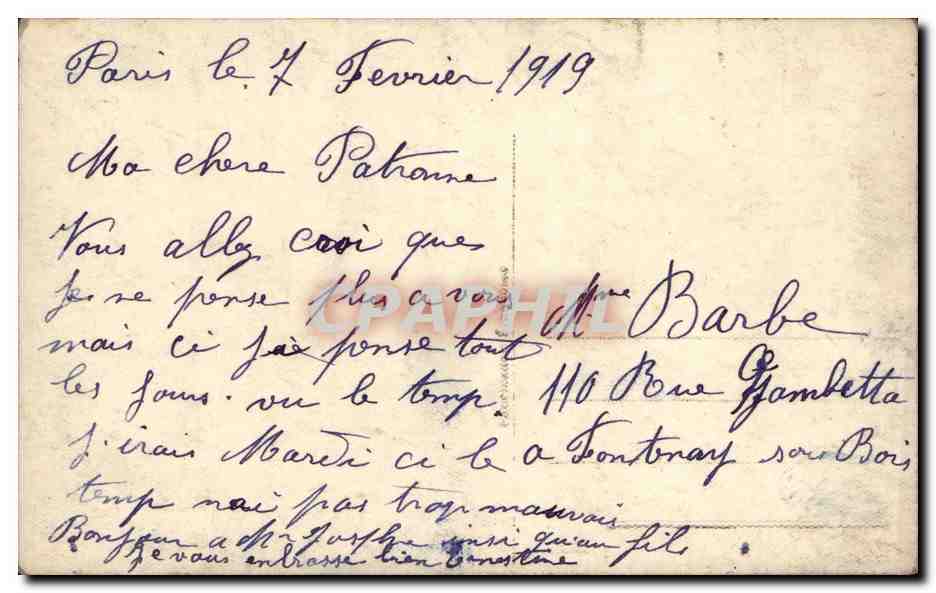 Paris le 7 Fevrier 1919
Ma chere Patronne
Vous allez croi ques
Je ne pense plus a vous
mais ci j'ai pense tout
les jours. vu le temp
j'irais Mardi ci le
temp nai pas trop mauvais
Bonjour a Mr Josphe insi qu'au fils
Je vous embrasse bien Ernestine
Mme Barbe
110 Rue Gambetta
a Fontenay sou Bois
CPAPHIL